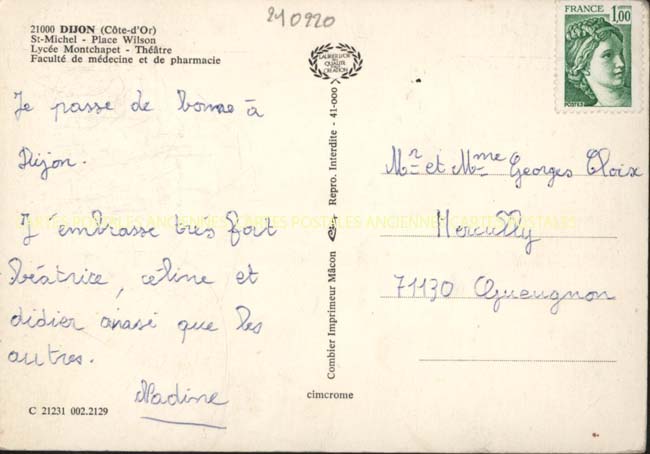 210920
21000 DIJON (Côte-d'Or)
St-Michel - Place Wilson
Lycée Montchapet - Théâtre
Faculté de médecine et de pharmacie
FRANCE
1,00
POSTES
LAURIER D'OR
DE LA
QUALITÉ
DE
CRÉATION
Je passe de bonne à
Dijon.
J'embrasse très fort
béatrice, céline et
didier ainsi que les
autres.
Nadine
Mr et Mme Georges Cloix
71130 Gueugnon
CARTES POSTALES ANCIENNES CARTES POSTALES ANCIENNES CARTES POSTALES
Combier Imprimeur Mâcon
Repro. Interdite - 41-000
cimcrome
C 21231 002.2129